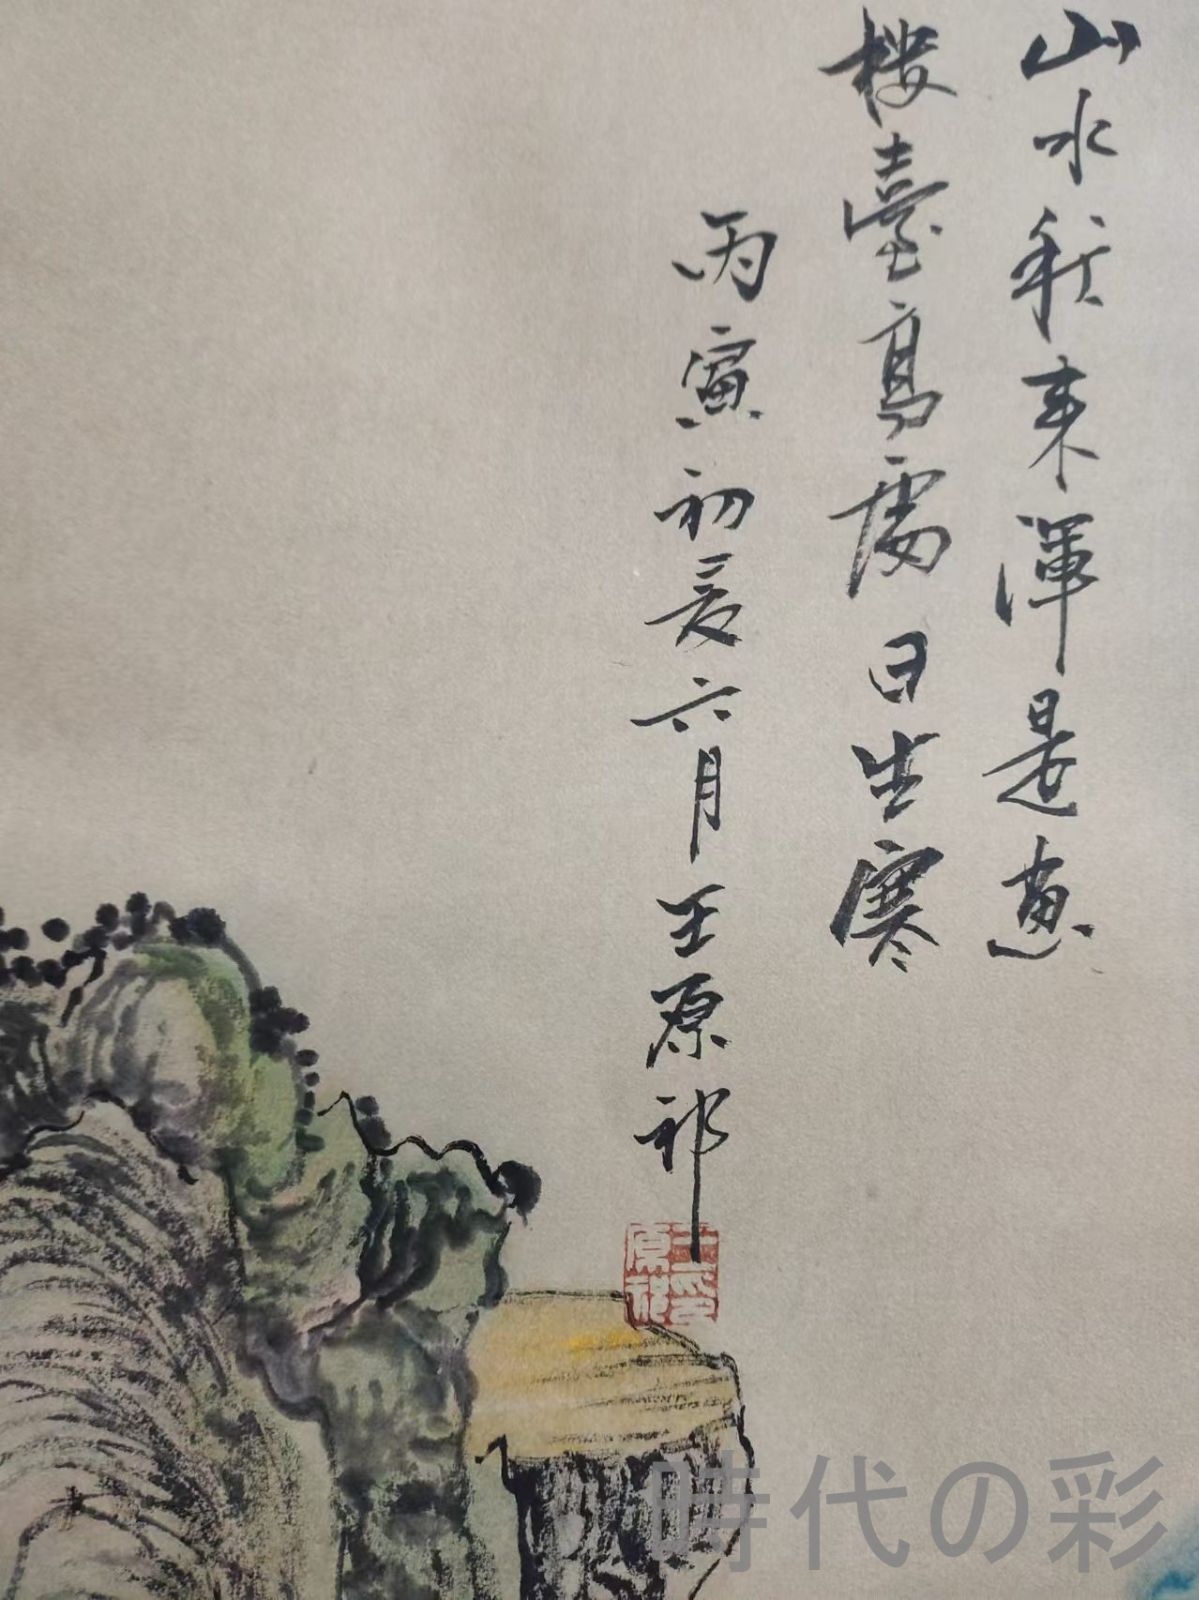 山水秋来渾是畫
樓臺高處日生寒
丙寅初夏六月王原祁
王原祁印
時代の彩